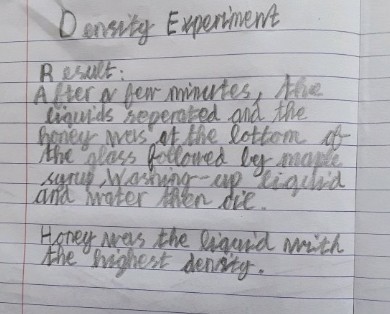 Density Experiment
Result:
After a few minutes, the
liquids seperated and the
honey was at the bottom of
the glass followed by maple
syrup, Washing-up liquid
and water then oil.
Honey was the liquid with
the highest density.